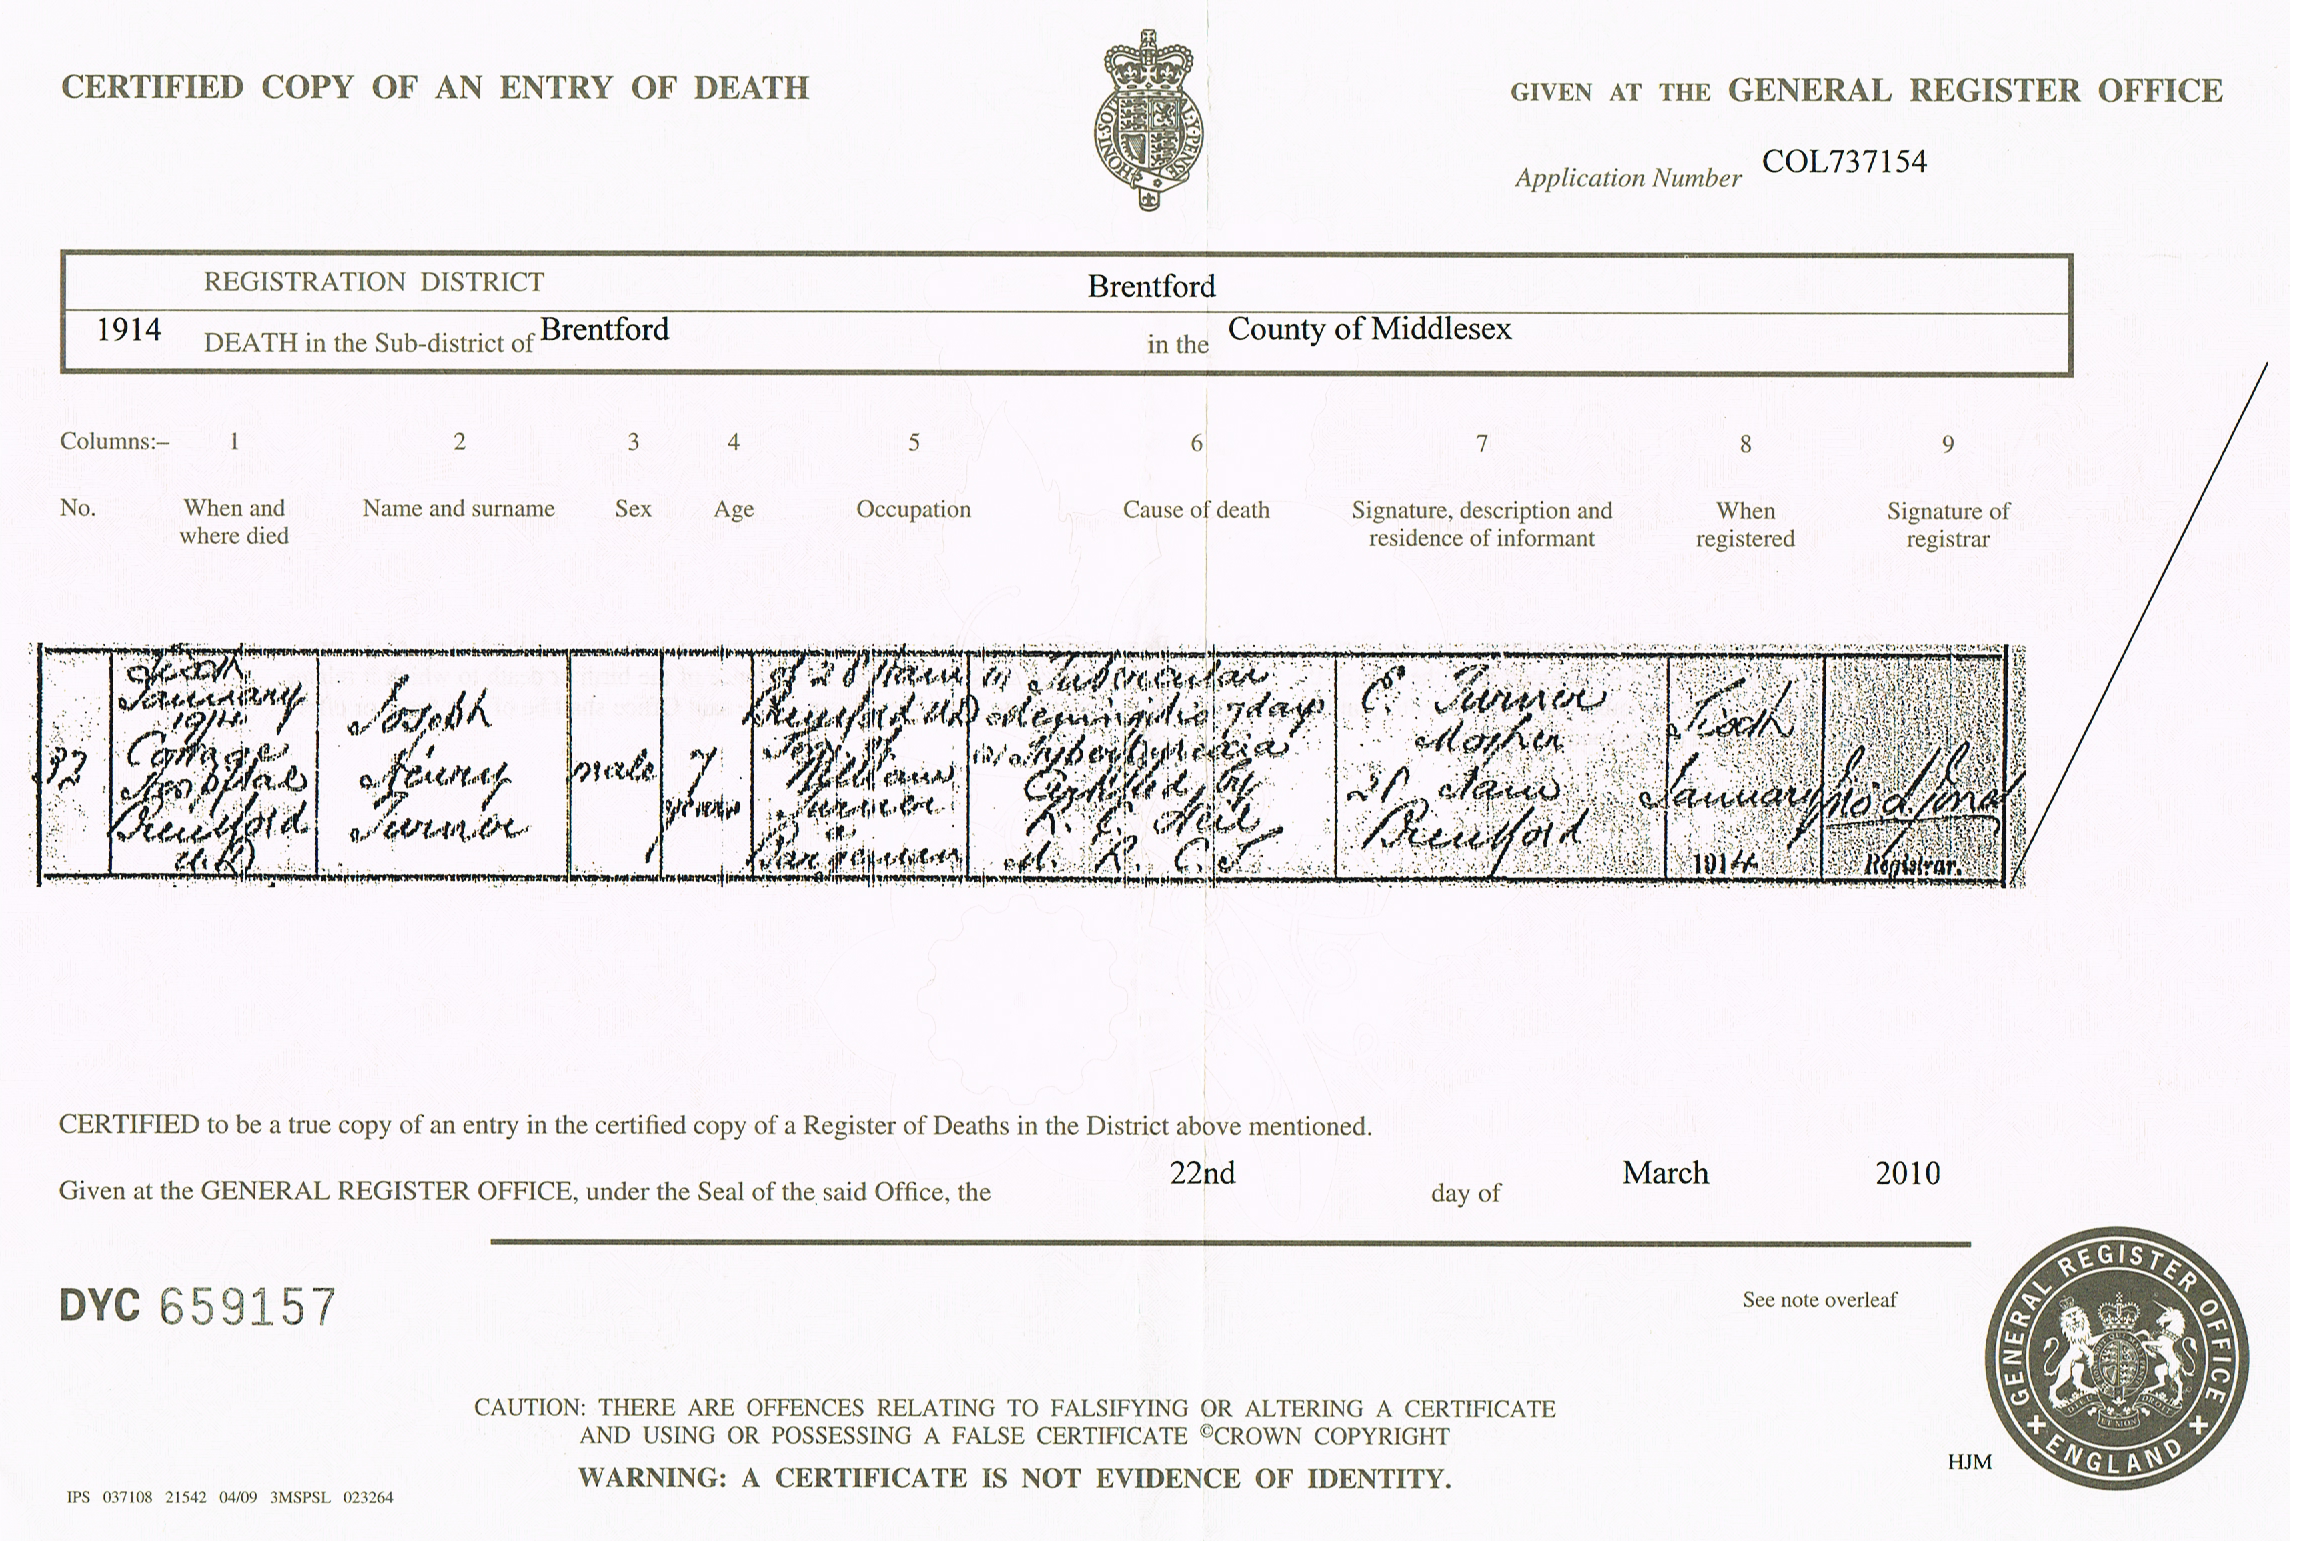 CERTIFIED COPY OF AN ENTRY OF DEATH
GIVEN AT THE GENERAL REGISTER OFFICE
Application Number COL737154
REGISTRATION DISTRICT Brentford
1914 DEATH in the Sub-district of Brentford in the County of Middlesex
Columns:– 1 2 3 4 5 6 7 8 9
No. When and where died Name and surname Sex Age Occupation Cause of death Signature, description and residence of informant When registered Signature of registrar
January
1914
Cottage
Hospital
Brentford
U.D
Joseph
Henry
Turner
male
7
years
Brentford UD
Son of
William
Turner
Bargeman
Tubercular
Meningitis 7 days
Hyperpyrexia
Certified by
M. R. C. S
E. Turner
Mother
Brentford
January
1914
Registrar.
CERTIFIED to be a true copy of an entry in the certified copy of a Register of Deaths in the District above mentioned.
Given at the GENERAL REGISTER OFFICE, under the Seal of the said Office, the 22nd day of March 2010
DYC 659157
See note overleaf
CAUTION: THERE ARE OFFENCES RELATING TO FALSIFYING OR ALTERING A CERTIFICATE
AND USING OR POSSESSING A FALSE CERTIFICATE ©CROWN COPYRIGHT
WARNING: A CERTIFICATE IS NOT EVIDENCE OF IDENTITY.
IPS 037108 21542 04/09 3MSPSL 023264
HJM
GENERAL REGISTER OFFICE
ENGLAND